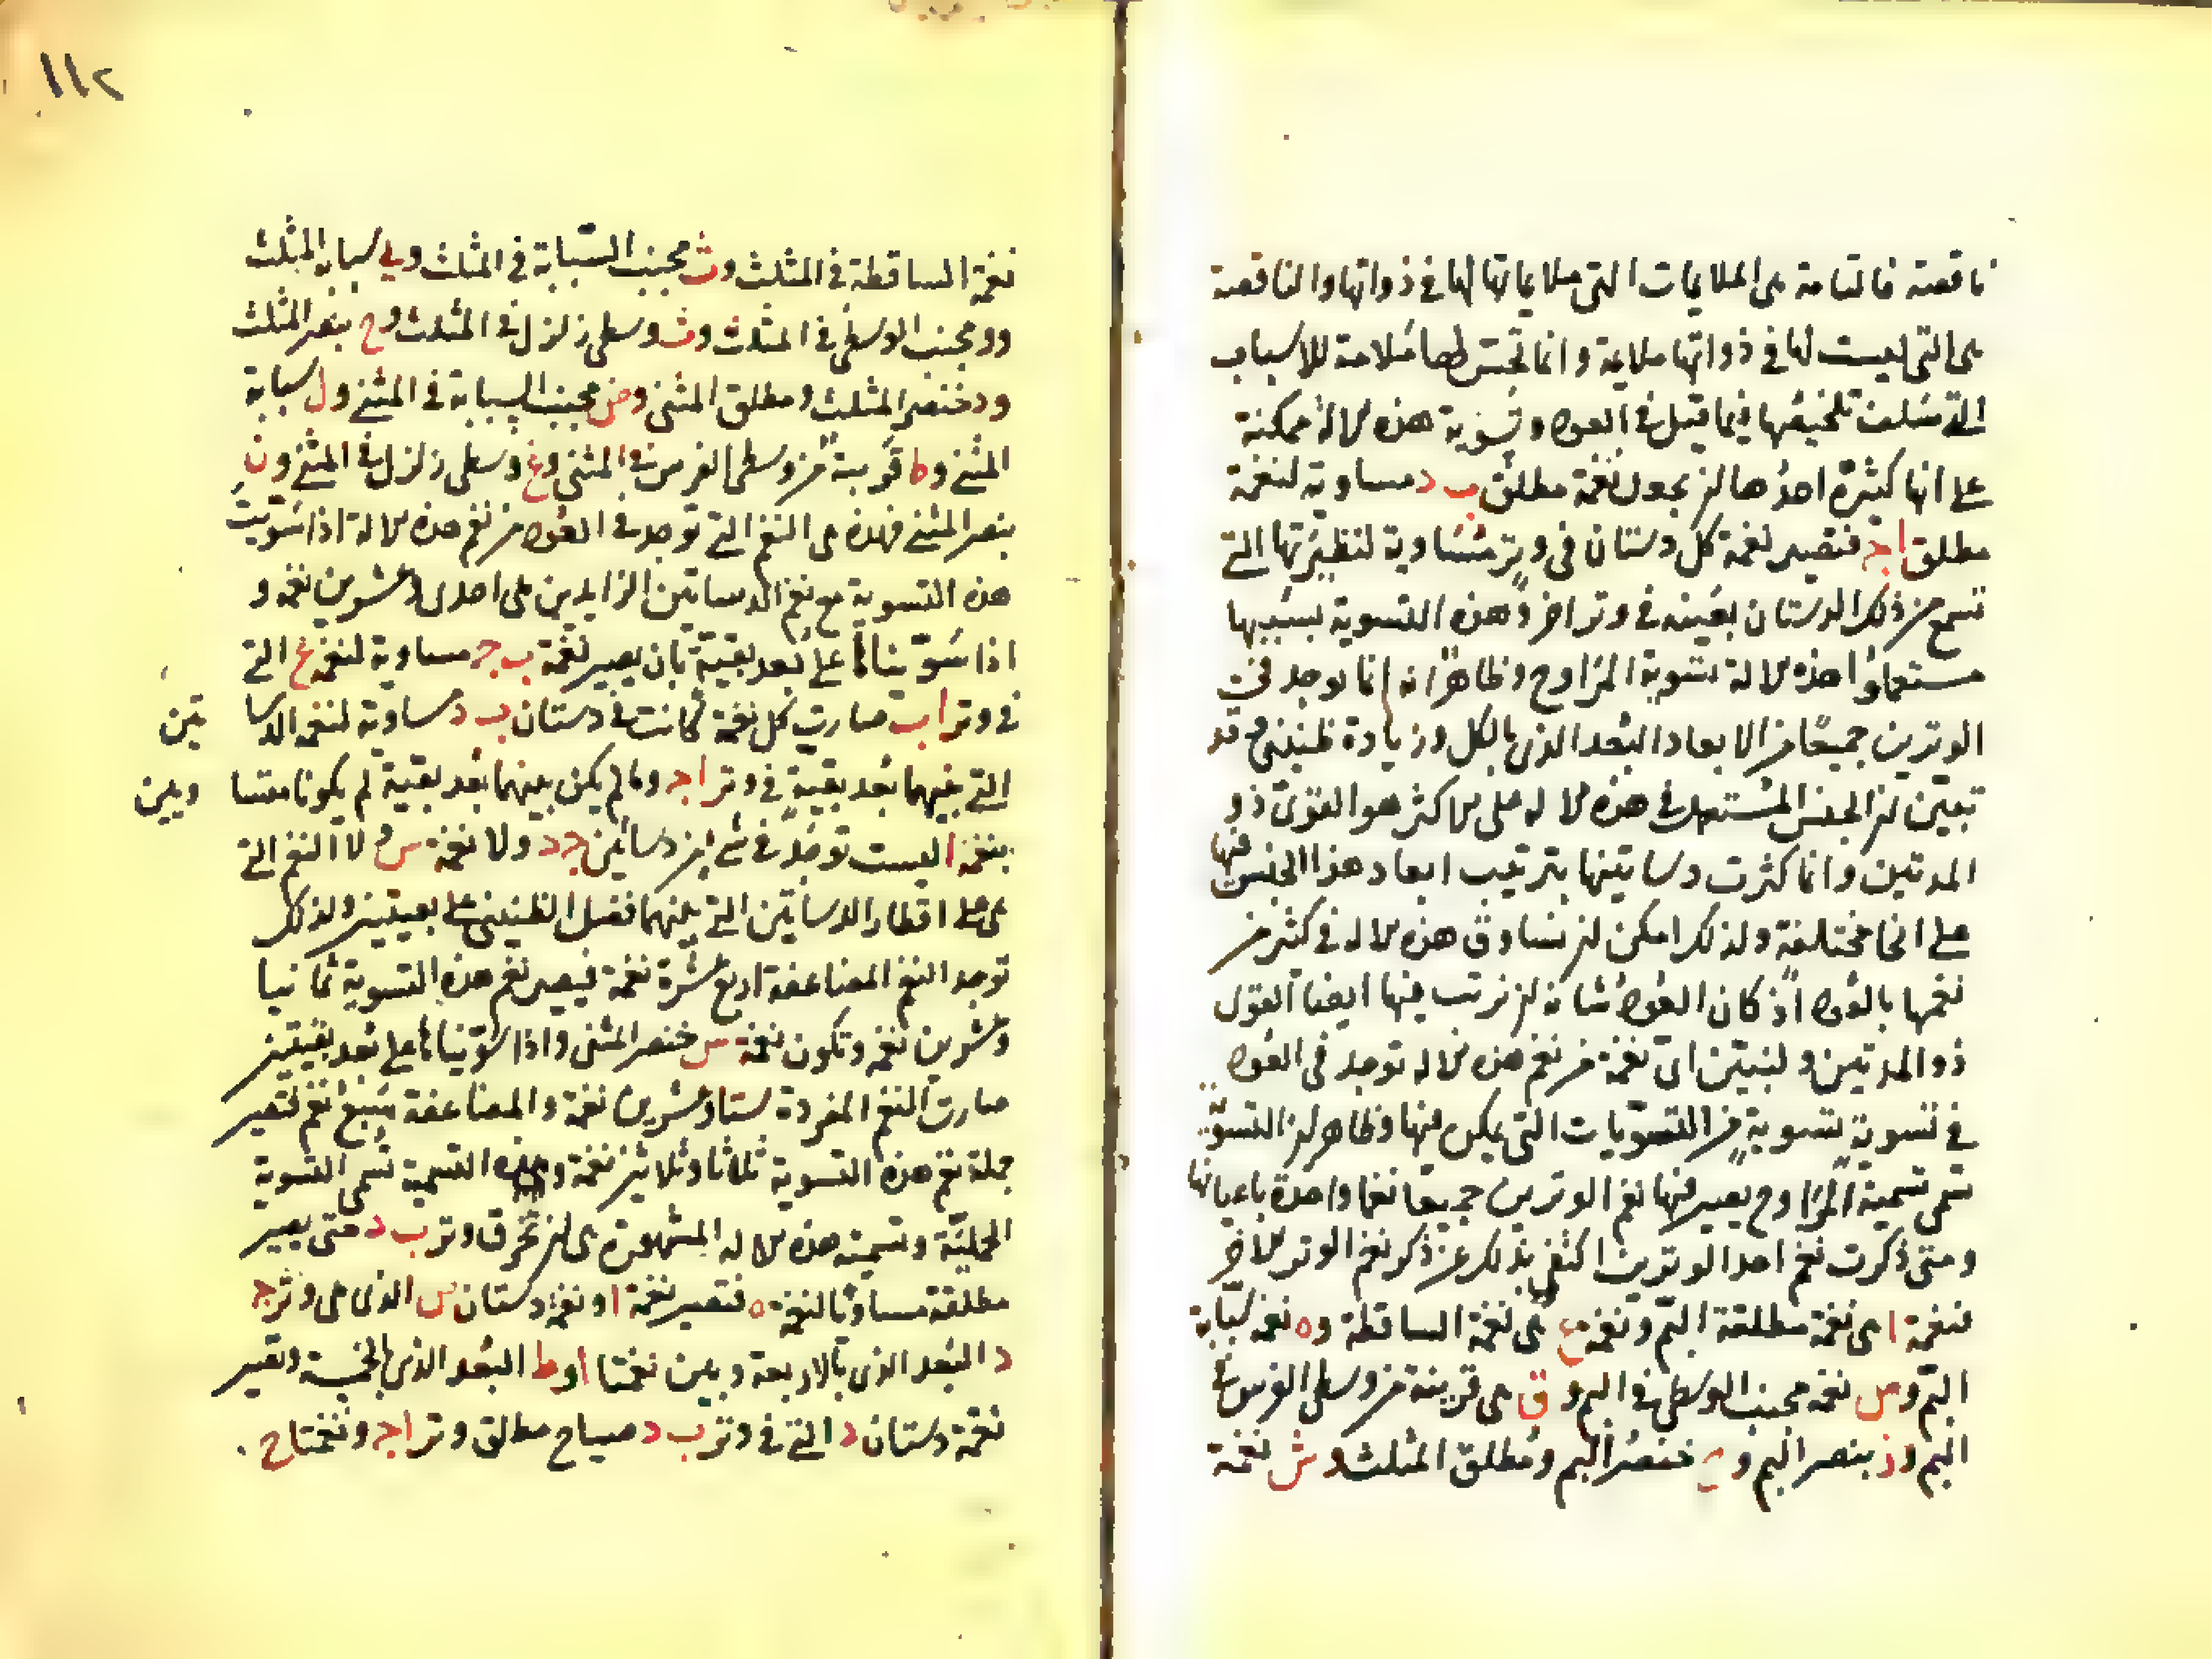 ناقصة فالتامة هى الملايمات التى ملايماتها لها فى ذواتها والناقصة
هى التى ليست لها فى ذواتها ملايمة وانما تحتس لها ملامة للاسباب
التى سلف تلخيصها فيما قيل فى العود وتسوية هذه الالة ممكنة
على انحا كثيرة احدها ان يجعل نغمة مطلق ب د مساوية لنغمة
مطلق ا ج فتصير نغمة كل دستان فى وتر مساوية لنظيرتها التى
تسمع من ذلك الدستان بعينه فى وتر اخر وهذه التسوية يسميها
مستعملوا هذه الالة تسوية المزاوج وظاهر انه انما يوجد فى
الوترين جميعا من الابعاد البعد الذى بالكل وزيادة طنينى وقد
تبين ان الجنس المستعمل فى هذه الالة على الاكثر هو القوى ذو
المدتين وانما كثرت دساتينها بترتيب ابعاد هذا الجنس فيها
على انحا مختلفة ولذلك امكن ان تساوق هذه الالة فى كثير من
نغمها بالعود اذ كان العود شانه ان نرتب فيها ايضا القول
ذو المدتين ولنبين اى نغمة من نغم هذه الالة توجد فى العود
فى تسوية تسوية من التسويات التى يمكن فيها وظاهر ان التسوية
تسمى تسمية المزاوج يصير فيها نغم الوترين جميعا نغما واحدة باعيانها
ومتى ذكرت نغم احد الوترين اكتفى بذلك عن ذكر نغم الوتر الاخر
فنغمة ا هى نغمة مطلقة البم ونغمة ع هى نغمة الساقطة و ه نغمة سبابة
البم و ص نغمة مجنب الوسطى فى البم و ق هى قريبة من وسطى الفرس فى
البم و ز بنصر البم و ح خنصر البم ومطلق المثلث و ش نغمة
١١٢
نغمة الساقطة فى المثلث و ث مجنب السبابة فى المثلث و ى سبابة المثلث
و و مجنب الوسطى فى المثلث و ث وسطى زلزل فى المثلث و ح بنصر المثلث
و د خنصر المثلث ومطلق المثنى و ض مجنب السبابة فى المثنى و ل سبابة
المثنى و ط قريبة من وسطى الفرس فى المثنى و غ وسطى زلزل فى المثنى و ن
بنصر المثنى فهذه هى النغم التى توجد فى العود من نغم هذه الالة اذا سويت
هذه التسوية مع نغم الدساتين الزايدين هى احدى وعشرين نغمة و
اذا سويناها على بعد بقية بان يصير نغمة ب ج مساوية لنغمة ع التى
فى وتر ا ب صارت كل نغمة كانت فى دستان ب د مساوية لنغم الدسا تين
التى بينهما بعد بقية فى وتر ا ج وما لم يكن بينهما بعد بقية لم يكونا متسا ويين
فنغمة ا ليست توجد فى شى من دساتين ج د ولا نغمة س ولا النغم التى
هى على اقطار الدساتين التى بينهما فضل الطنينى على بقيتين ولذلك
توجد النغم المضاعفة اربع عشرة نغمة فيصير نغم هذه التسوية ثمانيا
وعشرين نغمة وتكون نغمة س خنصر المثنى واذا سويناها على بعد بقيتين
صارت النغم المفردة ستا وعشرين نغمة والمضاعفة سبع نغم فتصير
جملة نغم هذه التسوية ثلاثا وثلاثين نغمة وهذه التسمية تسمى التسوية
الجبلية وتسمية هذه الالة المشهورة هى ان تحزق وتر ب د حتى يصير
مطلقة مساوبا لنغمة ه فتصير نغمة ا ونغمة دستان س الذى هى وتر ج
د البعد الذى بالاربعة وبين نغمتا ا و ط البعد الذى بالخمسة وتصير
نغمة دستان د التى فى وتر ب د صياح مطلق وتر ا ج ونغمتا ح